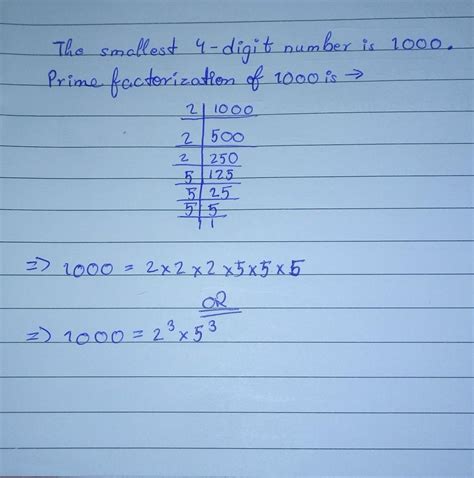 The smallest 4-digit number is 1000.
Prime factorization of 1000 is →
2 | 1000
2 | 500
2 | 250
5 | 125
5 | 25
5 | 5
1
⇒ 1000 = 2×2×2×5×5×5
OR
⇒ 1000 = 2³×5³